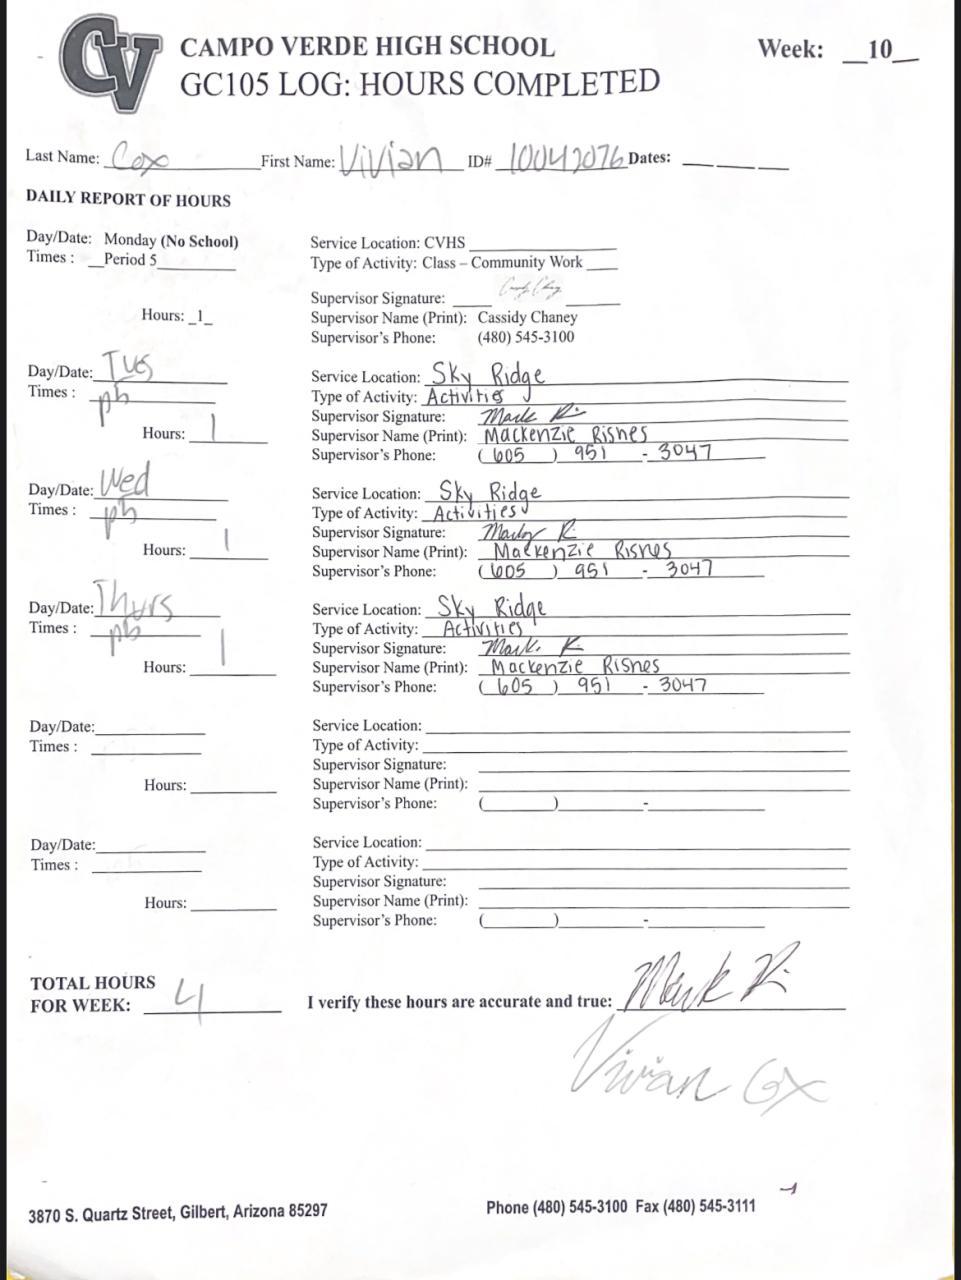 CV
CAMPO VERDE HIGH SCHOOL
Week: __10__
GC105 LOG: HOURS COMPLETED
Last Name: Cox First Name: Vivian ID# 10042076 Dates: ___ ___ ___
DAILY REPORT OF HOURS
Day/Date: Monday (No School)
Times : __Period 5
Hours: _1_
Service Location: CVHS
Type of Activity: Class – Community Work
Supervisor Signature:
Supervisor Name (Print): Cassidy Chaney
Supervisor's Phone: (480) 545-3100
Day/Date: Tues
Times : ph
Hours: 1
Service Location: Sky Ridge
Type of Activity: Activities
Supervisor Signature:
Supervisor Name (Print): Mackenzie Risnes
Supervisor's Phone: (605) 951 - 3047
Day/Date: Wed
Times : ph
Hours: 1
Service Location: Sky Ridge
Type of Activity: Activities
Supervisor Signature:
Supervisor Name (Print): Mackenzie Risnes
Supervisor's Phone: (605) 951 - 3047
Day/Date: Thurs
Times : ph
Hours: 1
Service Location: Sky Ridge
Type of Activity: Activities
Supervisor Signature:
Supervisor Name (Print): Mackenzie Risnes
Supervisor's Phone: (605) 951 - 3047
Day/Date:
Times :
Hours:
Service Location:
Type of Activity:
Supervisor Signature:
Supervisor Name (Print):
Supervisor's Phone: ( ) -
Day/Date:
Times :
Hours:
Service Location:
Type of Activity:
Supervisor Signature:
Supervisor Name (Print):
Supervisor's Phone: ( ) -
TOTAL HOURS
FOR WEEK: 4
I verify these hours are accurate and true:
Vivian Cox
3870 S. Quartz Street, Gilbert, Arizona 85297
Phone (480) 545-3100 Fax (480) 545-3111